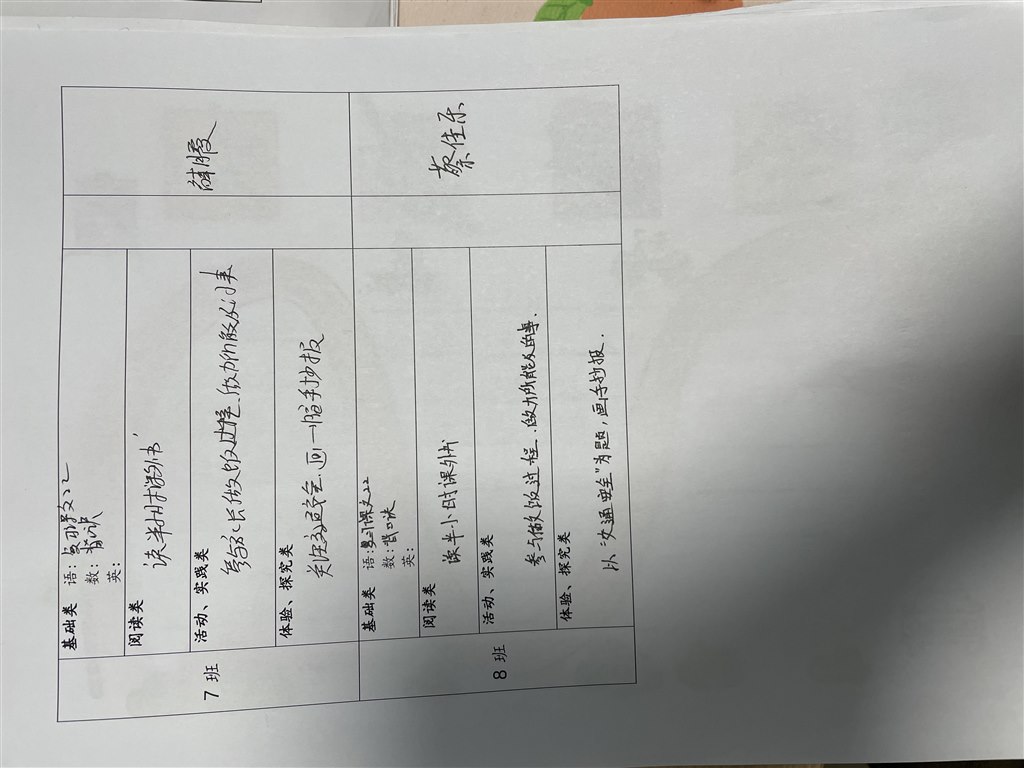 7 班
基础类
语：复习课文22
数：背口诀
英：
阅读类
读半小时课外书
活动、实践类
参与家长做饭过程、做力所能及的事
体验、探究类
关注交通安全画一幅手抄报
8 班
蔡佳乐
基础类
语：复习课文22
数：背口诀
英：
阅读类
读半小时课外书
活动、实践类
参与做饭过程、做力所能及的事.
体验、探究类
以"交通安全"为题，画手抄报.